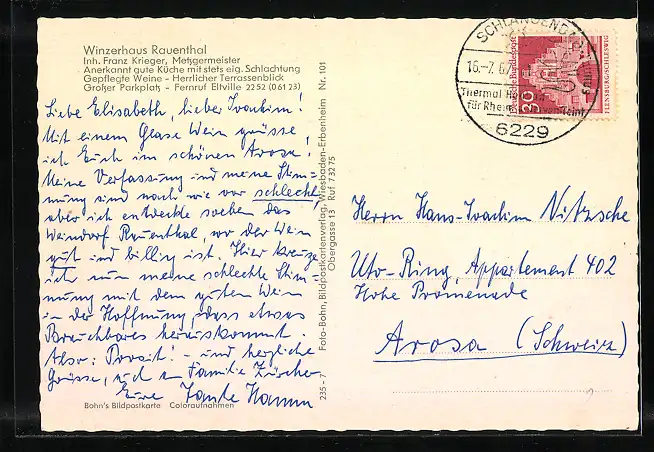 Winzerhaus Rauenthal
Inh. Franz Krieger, Metzgermeister
Anerkannt gute Küche mit stets eig. Schlachtung
Gepflegte Weine - Herrlicher Terrassenblick
Großer Parkplatz - Fernruf Eltville 2252 (06123)
Liebe Elisabeth, lieber Joachim!
Mit einem Glase Wein grüsse
ich Euch im schönen Arosa!
Meine Verfassung und meine Stim-
mung sind nach wie vor schlecht,
aber ich entdeckte soeben das
Weindorf Rauenthal, wo der Wein
gut und billig ist. Hier kreuze
ich nun meine schlechte Stim-
mung mit dem guten Wein
in der Hoffnung, dass etwas
Brauchbares herauskommt.
Also: Prosit! - und herzliche
Grüsse, auch an Familie
Eure Tante Hanna
Bohn's Bildpostkarte Coloraufnahmen
235-7 Foto-Bohn, Bildpostkartenverlag, Wiesbaden-Erbenheim Nr. 101
Obergasse 13 Ruf 73275
SCHLANGENBAD
16.-7. 67
Thermal
für Rheuma
6229
Deutsche Bundespost
30
FLENSBURG/SCHLESWIG
Herrn Hans-Joachim Nitzsche
Uto-Ring, Appartement 402
Hohe Promenade
Arosa (Schweiz)